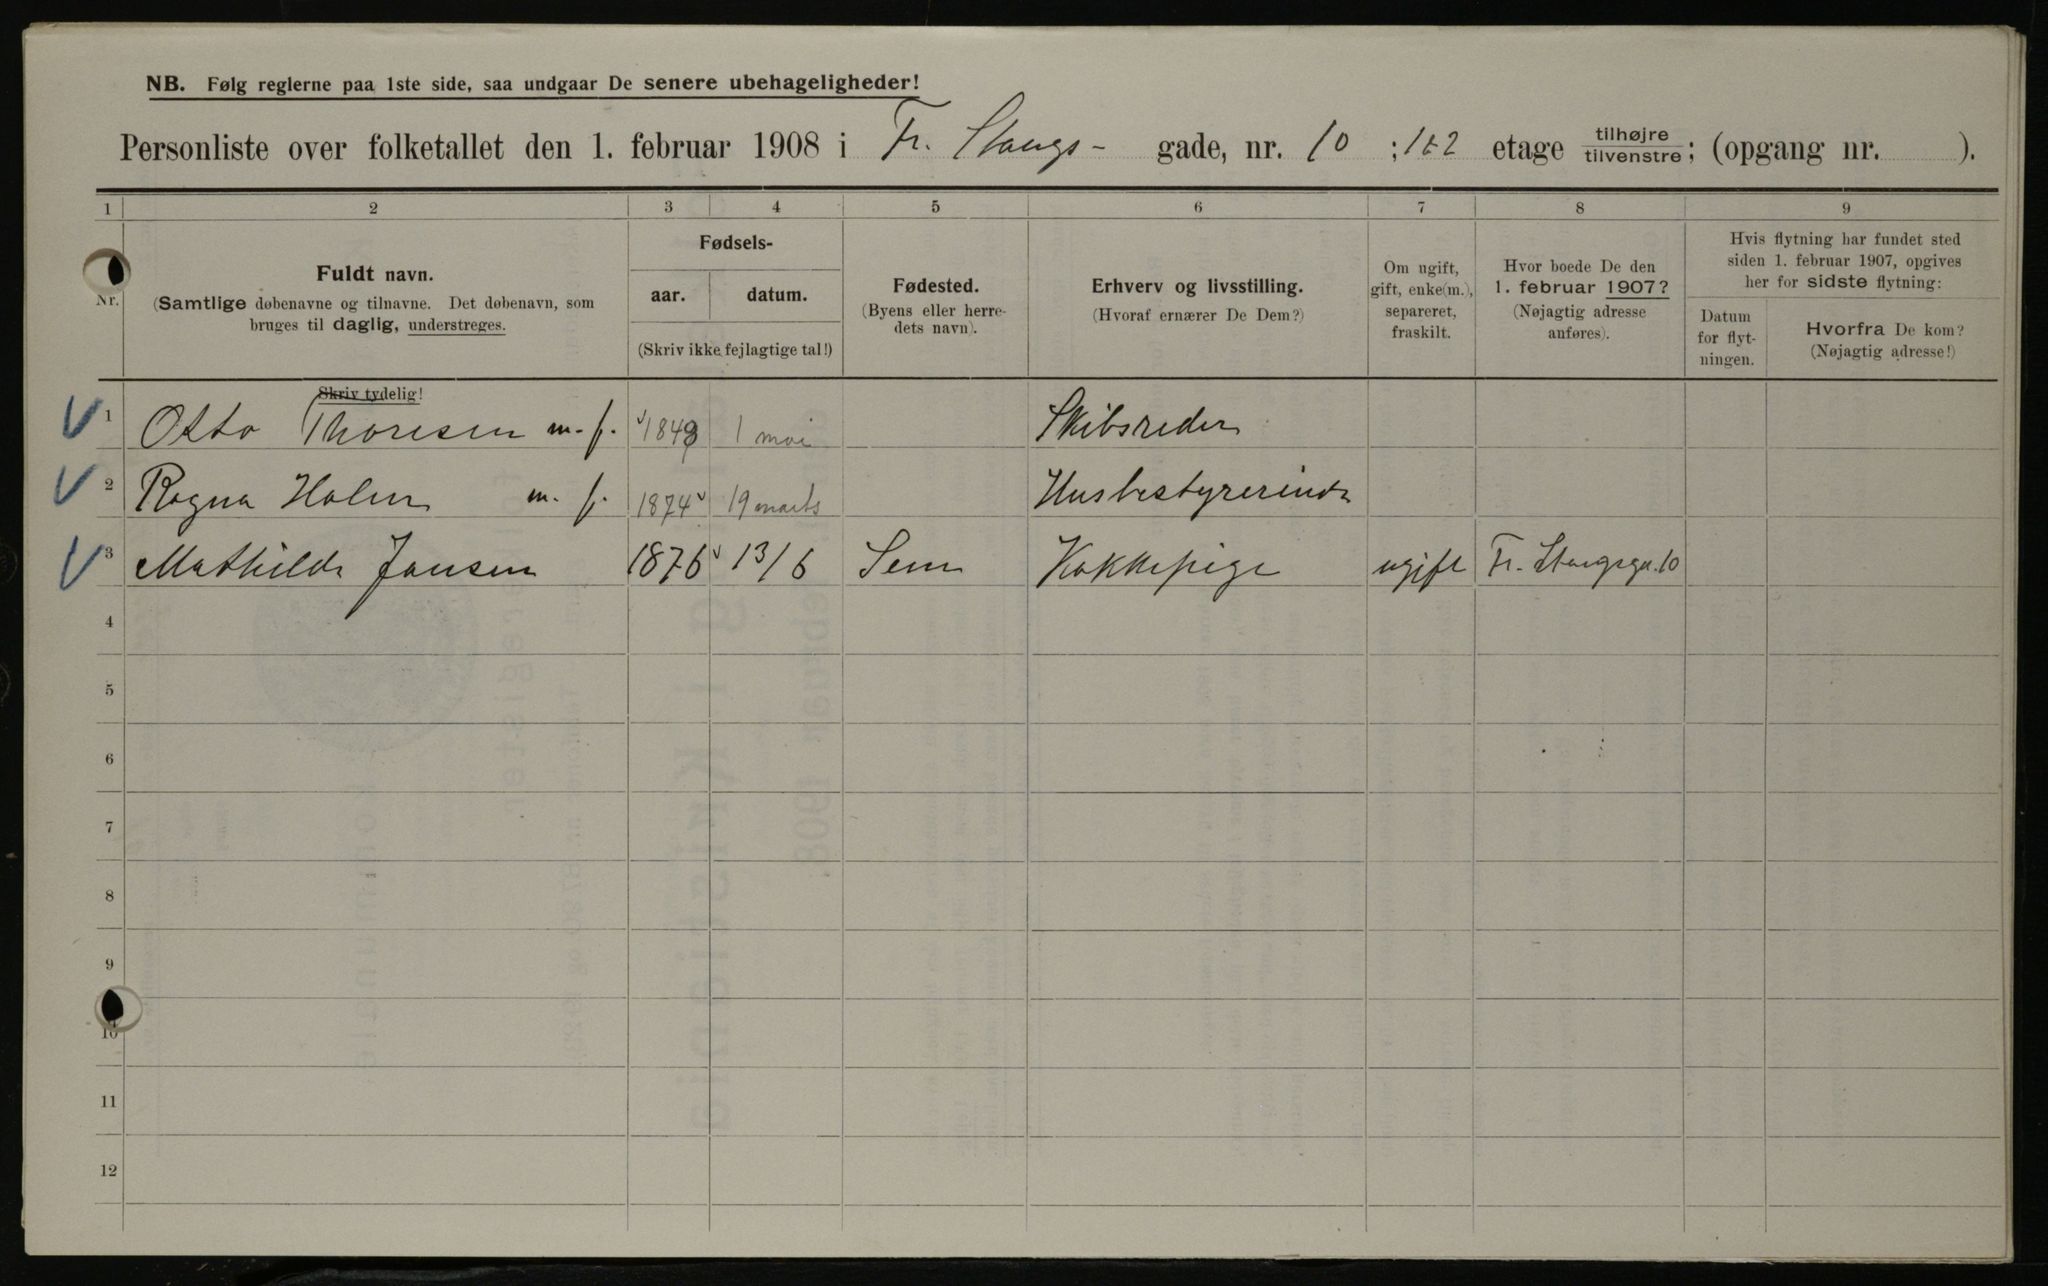 NB. Følg reglerne paa 1ste side, saa undgaar De senere ubehageligheder!
Personliste over folketallet den 1. februar 1908 i Fr. Stangs- gade, nr. 10 ; 1&2 etage tilhøjre/tilvenstre; (opgang nr. ).
1 2 3 4 5 6 7 8 9
Nr.
Fuldt navn.
(Samtlige døbenavne og tilnavne. Det døbenavn, som
bruges til daglig, understreges.
Skriv tydelig!
Fødsels-
aar. datum.
(Skriv ikke fejlagtige tal!)
Fødested.
(Byens eller herre-
dets navn).
Erhverv og livsstilling.
(Hvoraf ernærer De Dem?)
Om ugift,
gift, enke(m.),
separeret,
fraskilt.
Hvor boede De den
1. februar 1907?
(Nøjagtig adresse
anføres).
Hvis flytning har fundet sted
siden 1. februar 1907, opgives
her for sidste flytning:
Datum
for flyt-
ningen.
Hvorfra De kom?
(Nøjagtig adresse!)
1 Otto Thoresen m. f. 1849 1 mai Skibsreder
2 Ragna Holm m. f. 1874 19 marts Husbestyrerinde
3 Mathilde Jansen 1876 13/6 Sem Kokkepige ugift Fr. Stangsga. 10
4
5
6
7
8
9
10
11
12